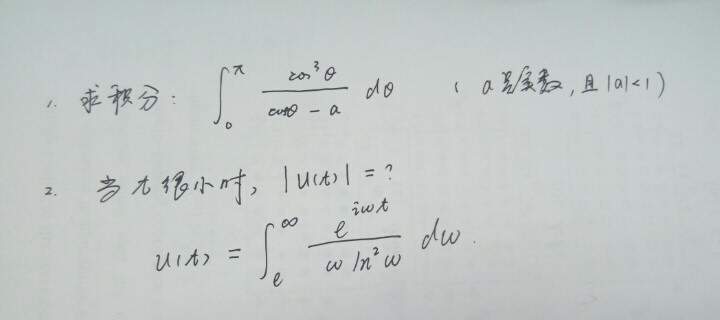 1. 求积分: ∫₀^π cos³θ / (cosθ − a) dθ ( a是实数, 且 |a|<1 )
2. 当 t 很小时, |u(t)| = ?
u(t) = ∫_e^∞ e^{iωt} / (ω ln²ω) dω.